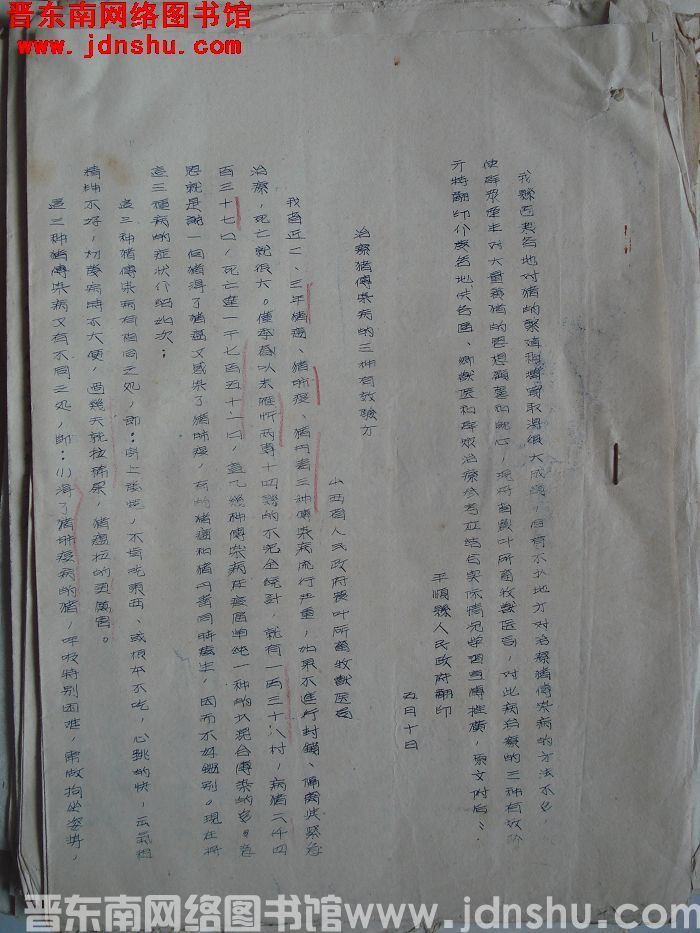 晋东南网络图书馆
www.jdnshu.com
我县过去各地对猪的繁殖和喂育取得很大成绩，但有不少地方对治疗猪传染病的方法不多
使群众产生对大量养猪的思想顾虑和耽心，现将省农叶所畜牧兽医局，对此病治疗的三种有效验
方特翻印介绍各地供各区、乡兽医和群众治疗参考并结合实际情况学习宣传推广，原文附后：
平顺县人民政府翻印
五月十日
治疗猪传染病的三种有效验方
山西省人民政府农叶所畜牧兽医局
我省近二、三年猪瘟、猪肺疫、猪丹毒三种传染病流行严重，如果不进行封锁、隔离与紧急
治疗，死亡就很大。仅本省以来雁忻两专十四县的不完全统计，就有一百三十八村，病猪六仟四
百三十七口，死亡达一千七百五十一口，这几种传染病在疫区单纯一种的少混合传染的多。意
思就是说一个猪得了猪瘟又感染了猪肺疫，有的猪瘟和猪丹毒同时发生，因而不好鉴别。现在将
这三种病的症状介绍如次：
这三种猪传染病有相同之处，即：身上发烧，不肯吃东西、或根本不吃，心跳的快，云气粗
精神不好，初发病时不大便，过几天就拉稀屎，猪瘟拉的更厉害。
这三种猪传染病又有不同之处，即：(1)得了猪肺疫病的猪，呼吸特别困难，常做狗坐姿势，
晋东南网络图书馆 www.jdnshu.com